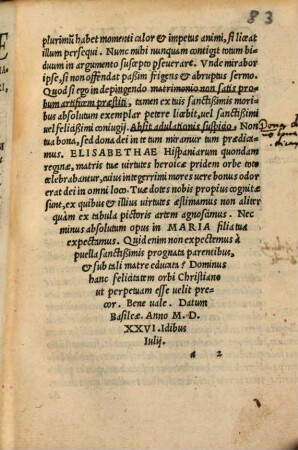 83
plurimũ habet momenti calor & impetus animi, si liceat
illum persequi. Nunc mihi nunquam contigit totum bi-
duum in argumento suscepto p̱seuerare. Vnde mirabor
ipse, si non offendat paßim frigens & abruptus sermo.
Quod si ego in depingendo matrimonio non satis pro-
bum artificem præstiti, tamen ex tuis sanctißimis mori-
bus absolutum exemplar petere licebit, uel sanctißimi
uel felicißimi coniugij. Absit adulationis suspicio. Non
tua bona, sed dona dei in te tum miramur tum prædica-
mus. ELISABETHAE Hispaniarum quondam
reginæ, matris tuæ uirtutes heroicæ pridem orbe toto
celebrabantur, cuius integerrimi mores uere bonus odor
erat dei in omni loco. Tuæ dotes nobis propius cognitæ
sunt, ex quibus & illius uirtutes æstimamus non aliter
quàm ex tabula pictoris artem agnoscimus. Nec
minus absolutum opus in MARIA filia tua
expectamus. Quid enim non expectemus à
puella sanctißimis prognata parentibus,
& sub tali matre educata? Dominus
hanc felicitatem orbi Christiano
ut perpetuam esse uelit pre-
cor. Bene uale. Datum
Basileæ. Anno M. D.
XXVI. Idibus
Iulij.
a 2